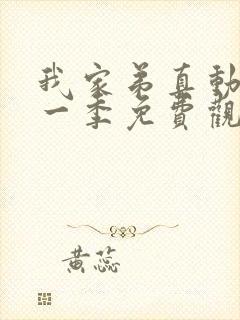 我家弟真動
一季免費觀
黄蕊